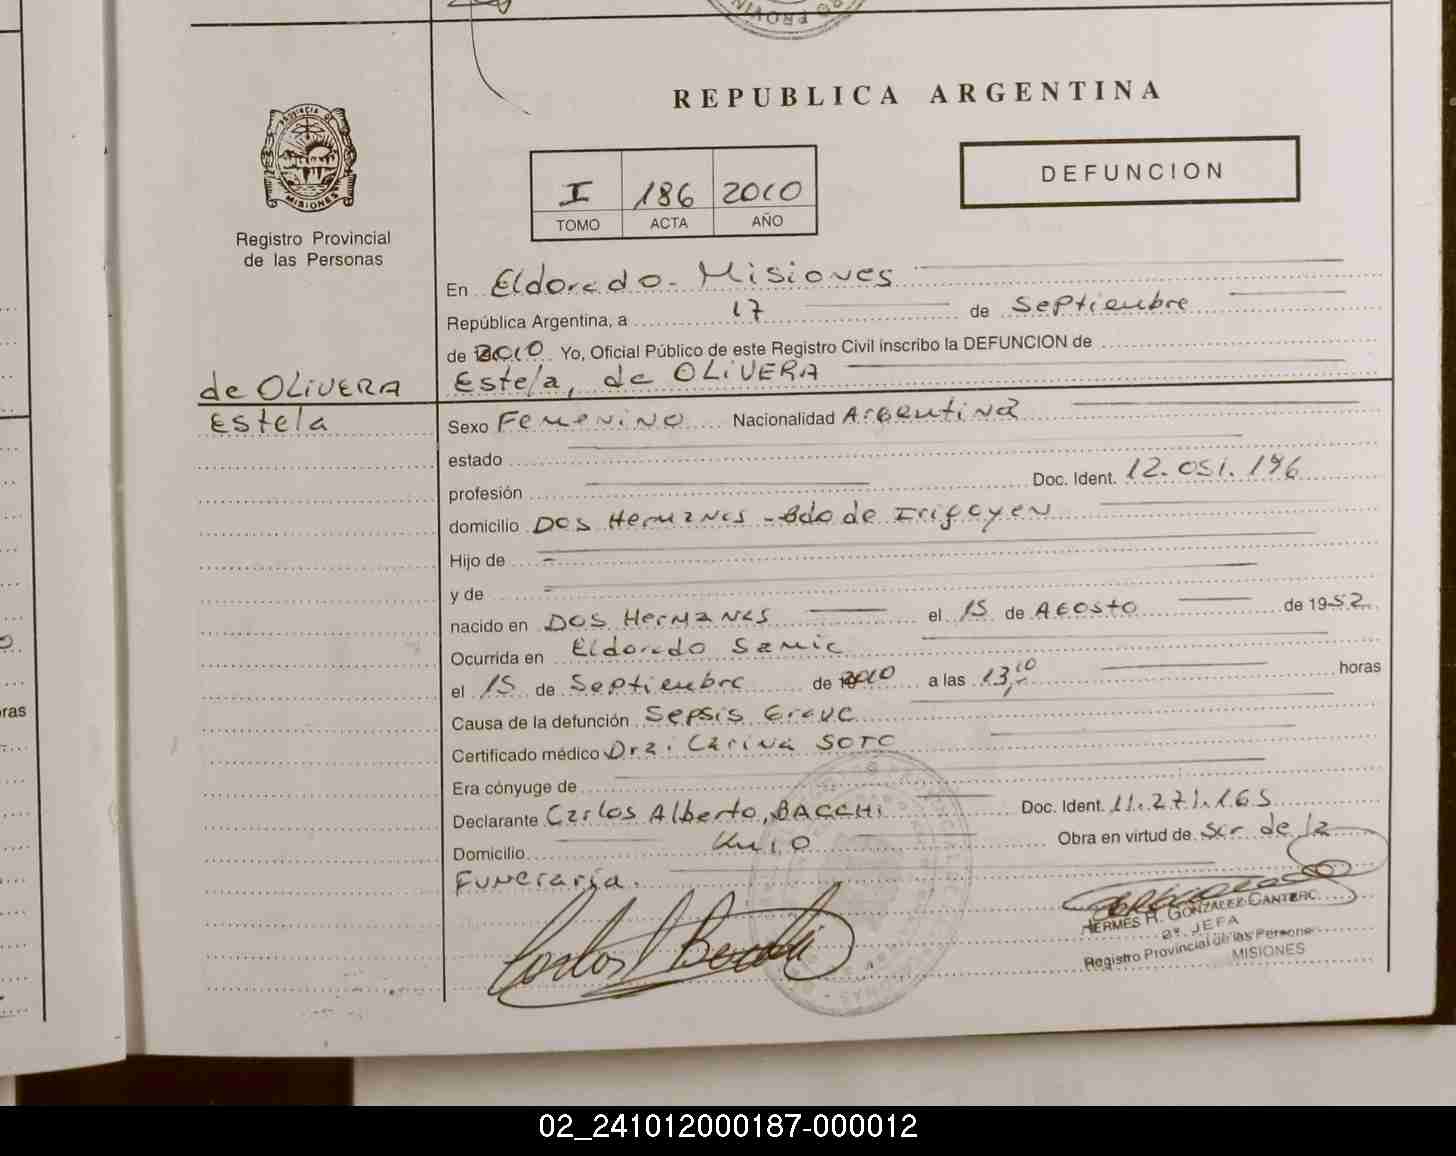 REPUBLICA ARGENTINA
PROVINCIA DE
MISIONES
Registro Provincial
de las Personas
I 186 2010
TOMO ACTA AÑO
DEFUNCION
En Eldorado - Misiones
República Argentina, a 17 de Septiembre
de 2010 Yo, Oficial Público de este Registro Civil inscribo la DEFUNCION de
Estela, de OLIVERA
de OLIVERA
Estela
Sexo Femenino Nacionalidad Argentina
estado
profesión Doc. Ident. 12.051.196
domicilio Dos Hermanas - Bdo de Irigoyen
Hijo de
y de
nacido en Dos Hermanas el 15 de Agosto de 1952
Ocurrida en Eldorado Samic
el 15 de Septiembre de 2010 a las 13,10 horas
Causa de la defunción Sepsis Grave
Certificado médico Dra. Carina SOTO
Era cónyuge de
Declarante Carlos Alberto, BACCHI Doc. Ident. 11.271.165
Domicilio Km 10 Obra en virtud de Ser de la
Funeraria.
Carlos Bacchi
HERMES R. GONZALEZ CANTERO
2º JEFA
Registro Provincial de las Personas
MISIONES
02_241012000187-000012